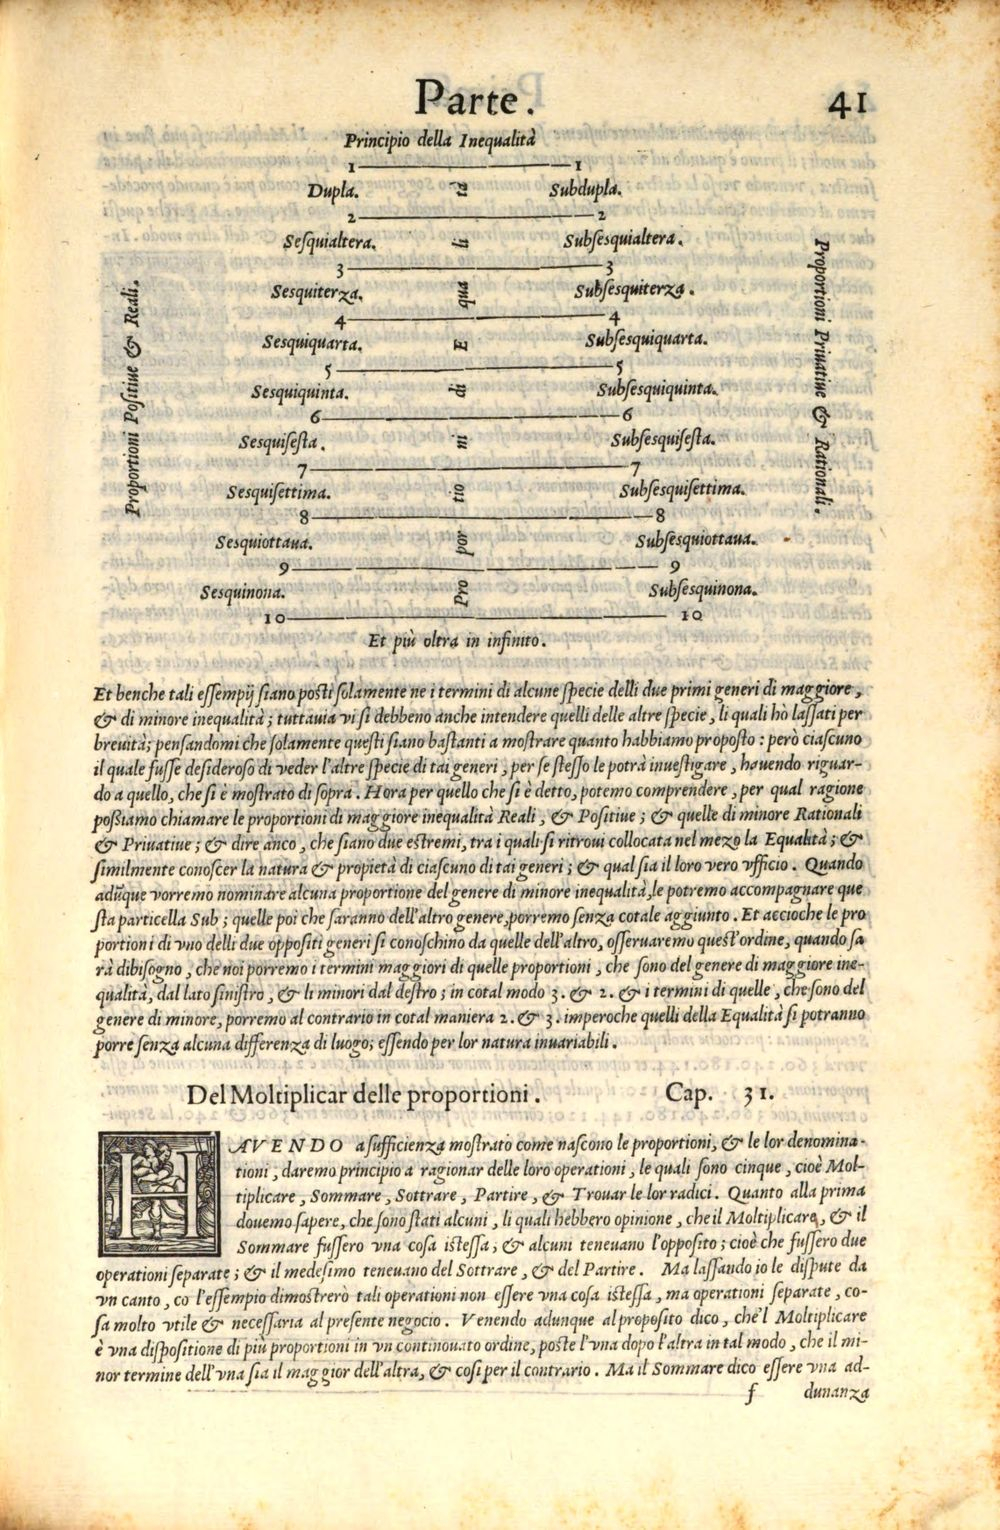 Parte.
41
Principio della Inequalità
1 1
Dupla. Subdupla.
2 2
Sesquialtera. Subsesquialtera.
3 3
Sesquiterza. Subsesquiterza.
4 4
Sesquiquarta. Subsesquiquarta.
5 5
Sesquiquinta. Subsesquiquinta.
6 6
Sesquisesta. Subsesquisesta.
7 7
Sesquisettima. Subsesquisettima.
8 8
Sesquiottaua. Subsesquiottaua.
9 9
Sesquinona. Subsesquinona.
10 10
Proportioni Positiue & Reali.
Pro por tio ni di E qua li tà
Proportioni Priuatiue & Rationali.
Et più oltra in infinito.
Et benche tali essempij siano posti solamente ne i termini di alcune specie delli due primi generi di maggiore,
& di minore inequalità; tuttauia vi si debbeno anche intendere quelli delle altre specie, li quali hò lassati per
breuità; pensandomi che solamente questi siano bastanti a mostrare quanto habbiamo proposto: però ciascuno
il quale fusse desideroso di veder l'altre specie di tai generi, per se stesso le potrà inuestigare, hauendo riguar-
do a quello, che si è mostrato di sopra. Hora per quello che si è detto, potemo comprendere, per qual ragione
possiamo chiamare le proportioni di maggiore inequalità Reali, & Positiue; & quelle di minore Rationali
& Priuatiue; & dire anco, che siano due estremi, tra i quali si ritroui collocata nel mezo la Equalità; &
similmente conoscer la natura & propietà di ciascuno di tai generi; & qual sia il loro vero vfficio. Quando
adũque vorremo nominare alcuna proportione del genere di minore inequalità, le potremo accompagnare que
sta particella Sub; quelle poi che saranno dell'altro genere, porremo senza cotale aggiunto. Et accioche le pro
portioni di vno delli due oppositi generi si conoschino da quelle dell'altro, osseruaremo quest'ordine, quando sa
rà dibisogno, che noi porremo i termini maggiori di quelle proportioni, che sono del genere di maggiore ine-
qualità, dal lato sinistro, & li minori dal destro; in cotal modo 3. & 2. & i termini di quelle, che sono del
genere di minore, porremo al contrario in cotal maniera 2. & 3. imperoche quelli della Equalità si potranno
porre senza alcuna differenza di luogo; essendo per lor natura inuariabili.
Del Moltiplicar delle proportioni. Cap. 31.
HAVENDO a sufficienza mostrato come nascono le proportioni, & le lor denomina-
tioni, daremo principio a ragionar delle loro operationi, le quali sono cinque, cioè Mol-
tiplicare, Sommare, Sottrare, Partire, & Trouar le lor radici. Quanto alla prima
douemo sapere, che sono stati alcuni, li quali hebbero opinione, che il Moltiplicare, & il
Sommare fussero vna cosa istessa; & alcuni teneuano l'opposito; cioè che fussero due
operationi separate; & il medesimo teneuano del Sottrare, & del Partire. Ma lassando io le dispute da
vn canto, co l'essempio dimostrerò tali operationi non essere vna cosa istessa, ma operationi separate, co-
sa molto vtile & necessaria al presente negocio. Venendo adunque al proposito dico, che'l Moltiplicare
è vna dispositione di più proportioni in vn continouato ordine, poste l'vna dopo l'altra in tal modo, che il mi-
nor termine dell'vna sia il maggior dell'altra, & cosi per il contrario. Ma il Sommare dico essere vna ad-
f dunanza